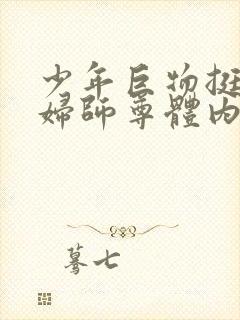 少年巨物挺
婦師尊體內
驀七